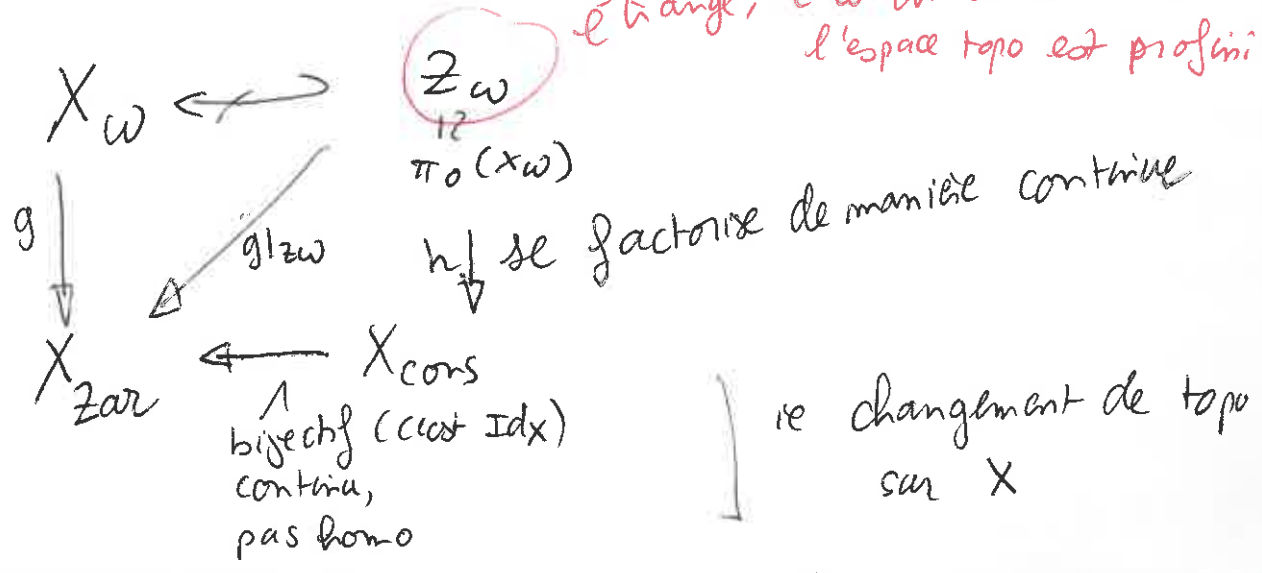 étrange,
l'espace topo est profini
X_w
Z_w
π_0 (X_w)
g
g|_{Z_w}
h
se factorise de manière continue
X_{Zar}
X_{cons}
bijectif (c'est Id_X)
continu,
pas homo
ie changement de topo
sur X